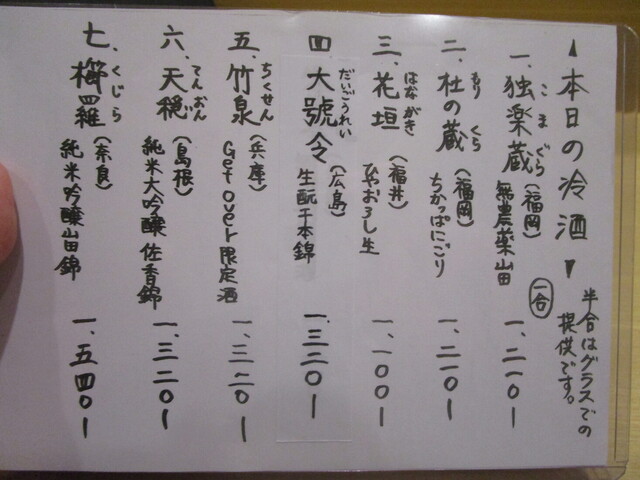 ▲本日の冷酒▼
半合はグラスでの
提供です。
一合
一、独楽蔵(福岡)無農薬山田 一、二一〇ー
こまぐら
二、杜の蔵(福岡)ちかっぱにごり 一、二一〇ー
もりくら
三、花垣(福井)ひやおろし生 一、一〇〇ー
はながき
四、大號令(広島)生酛千本錦 一、三二〇ー
だいごうれい
五、竹泉(兵庫)Get over限定酒 一、三二〇ー
ちくせん
六、天穏(島根)純米大吟醸 佐香錦 一、三二〇ー
てんおん
七、櫛羅(奈良)純米吟醸山田錦 一、五四〇ー
くじら